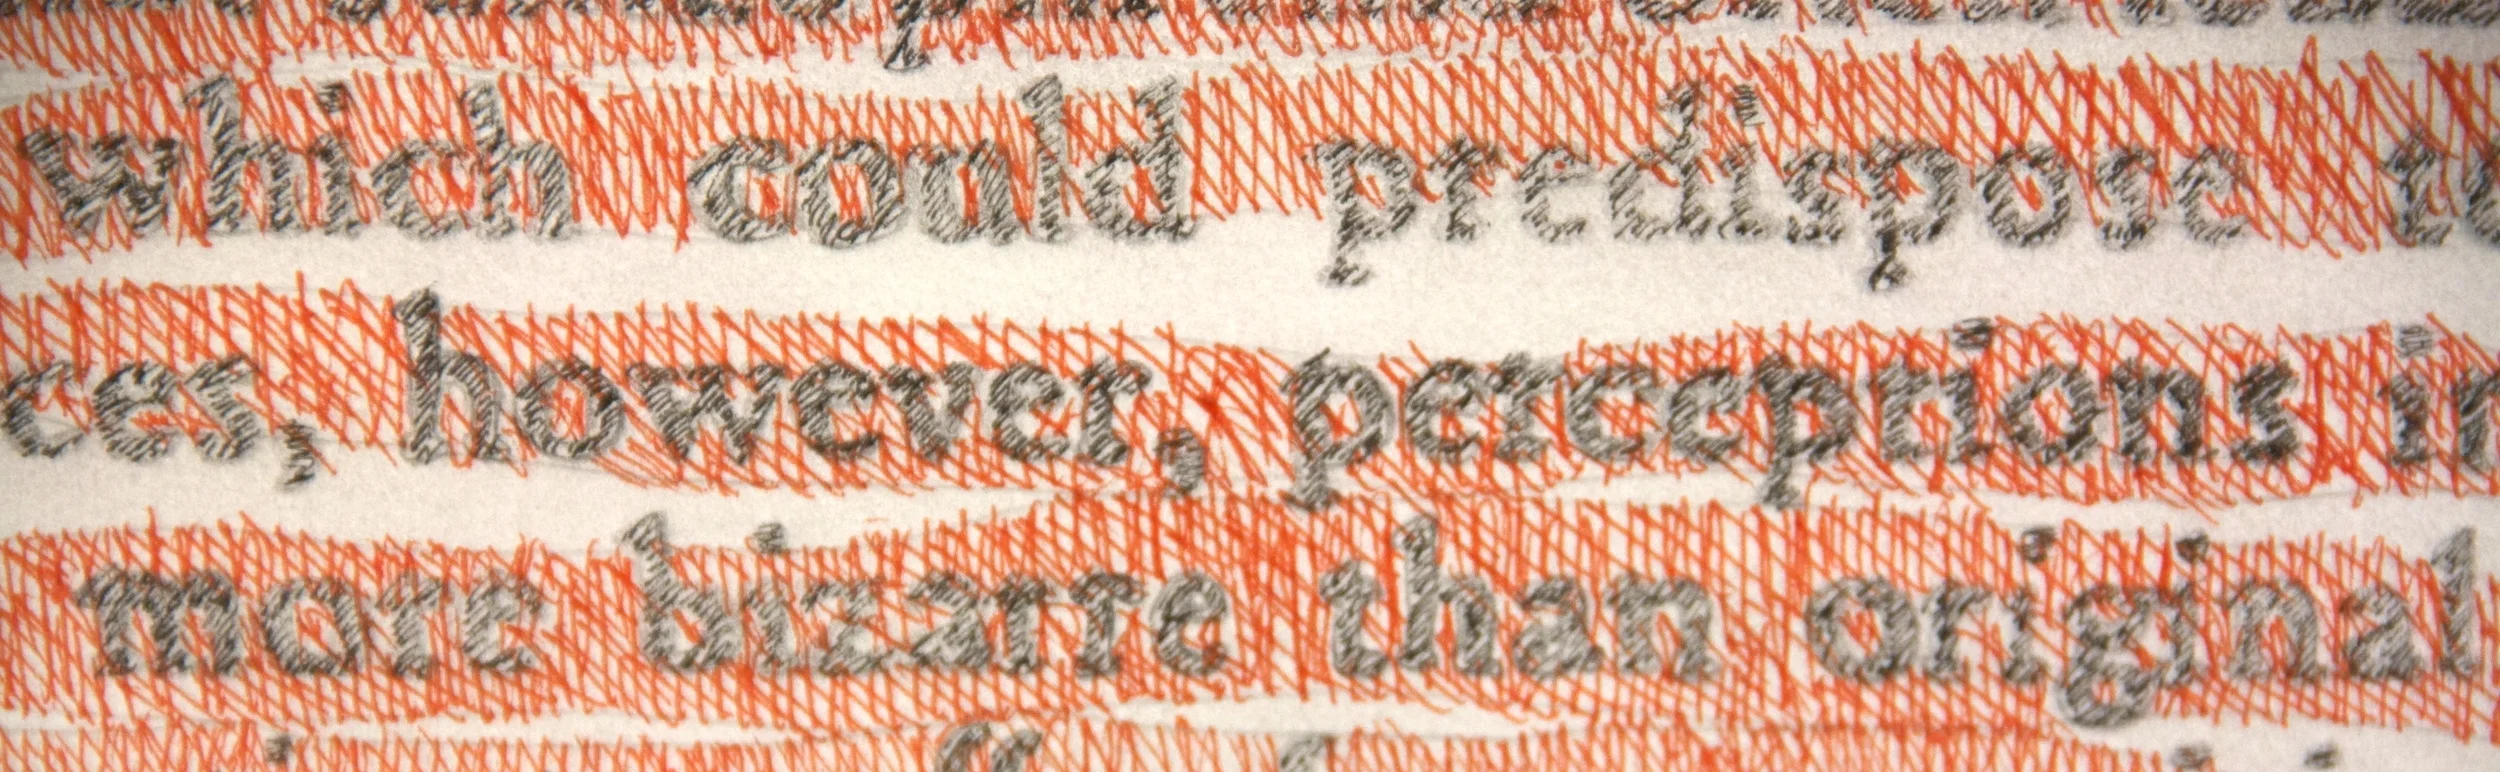 which could predispose to
ces, however, perceptions in
more bizarre than original